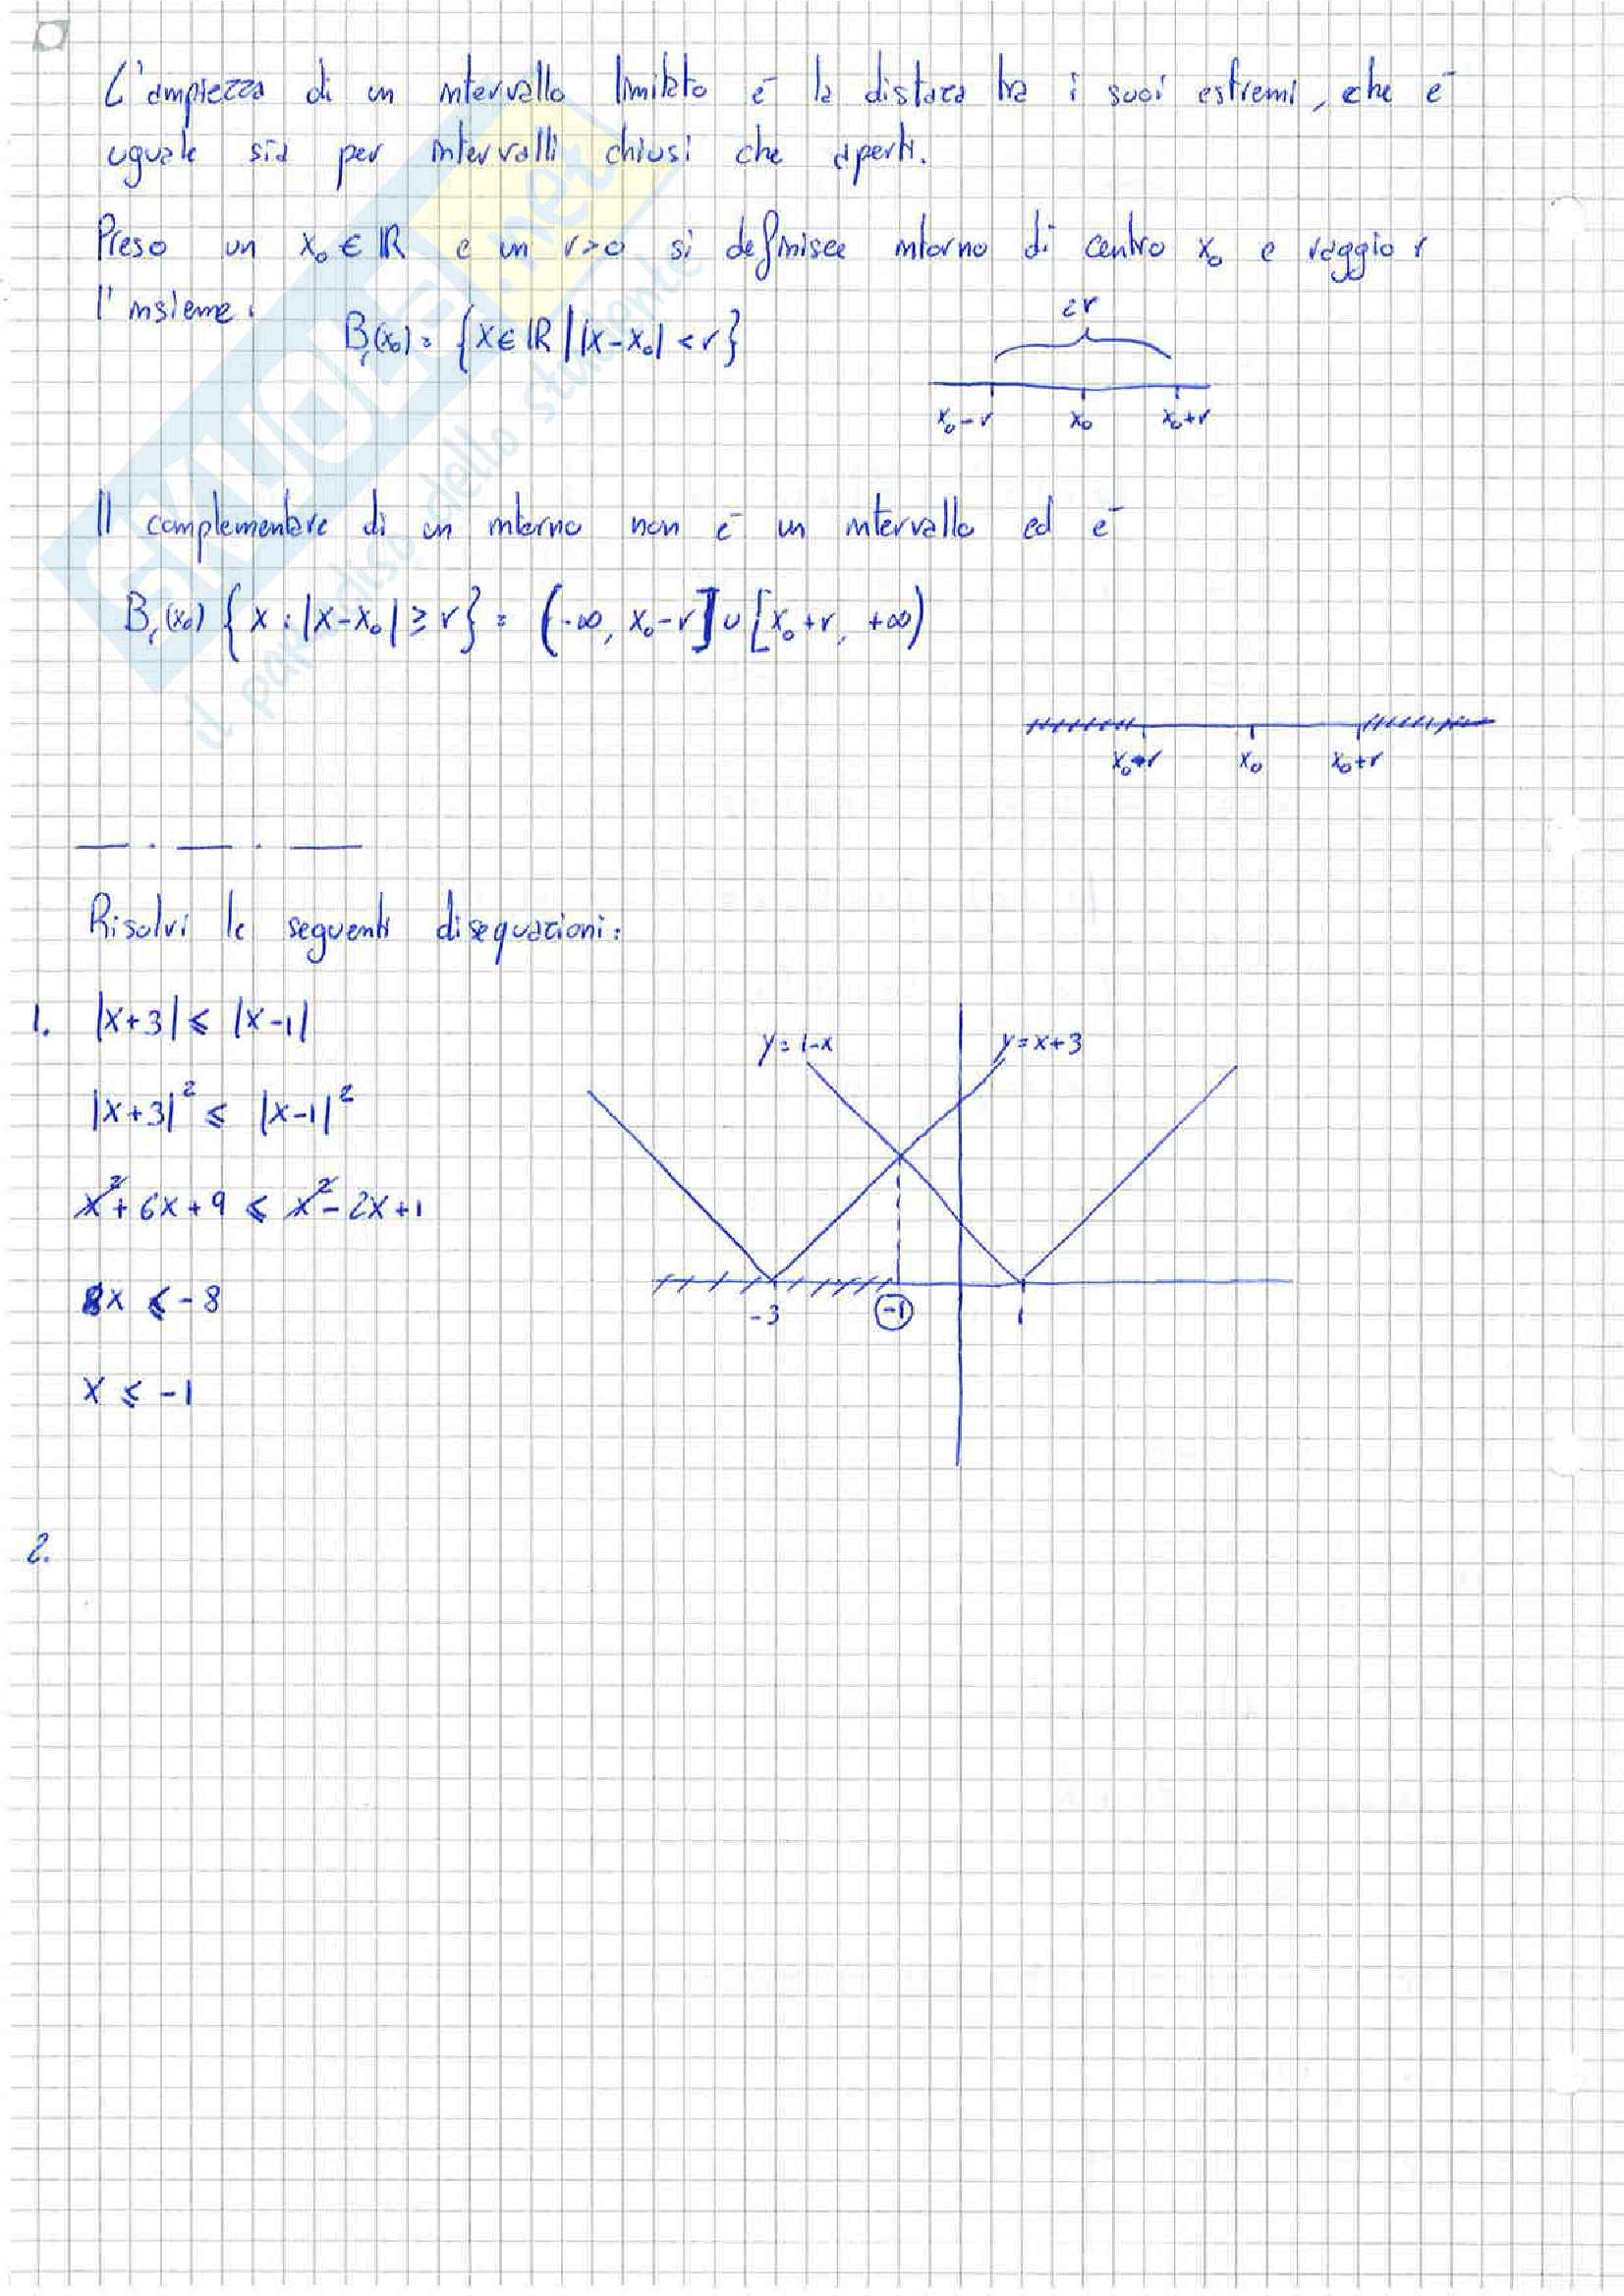 L'ampiezza di un intervallo limitato è la distaza tra i suoi estremi, che è
uguale sia per intervalli chiusi che aperti.
Preso un x₀ ∈ ℝ e un r>0 si definisce intorno di centro x₀ e raggio r
l'insieme:
Bᵣ(x₀) = {x ∈ ℝ | |x-x₀| < r}
2r
x₀-r x₀ x₀+r
Il complementare di un intorno non è un intervallo ed è
Bᵣ(x₀) {x : |x-x₀| ≥ r} = (-∞, x₀-r] ∪ [x₀+r, +∞)
x₀-r x₀ x₀+r
Risolvi le seguenti disequazioni:
1. |x+3| ≤ |x-1|
y=1-x y=x+3
|x+3|² ≤ |x-1|²
x²+6x+9 ≤ x²-2x+1
8x ≤ -8
-3 -1 1
x ≤ -1
2.
SKUOLA.net
il paradiso dello studente